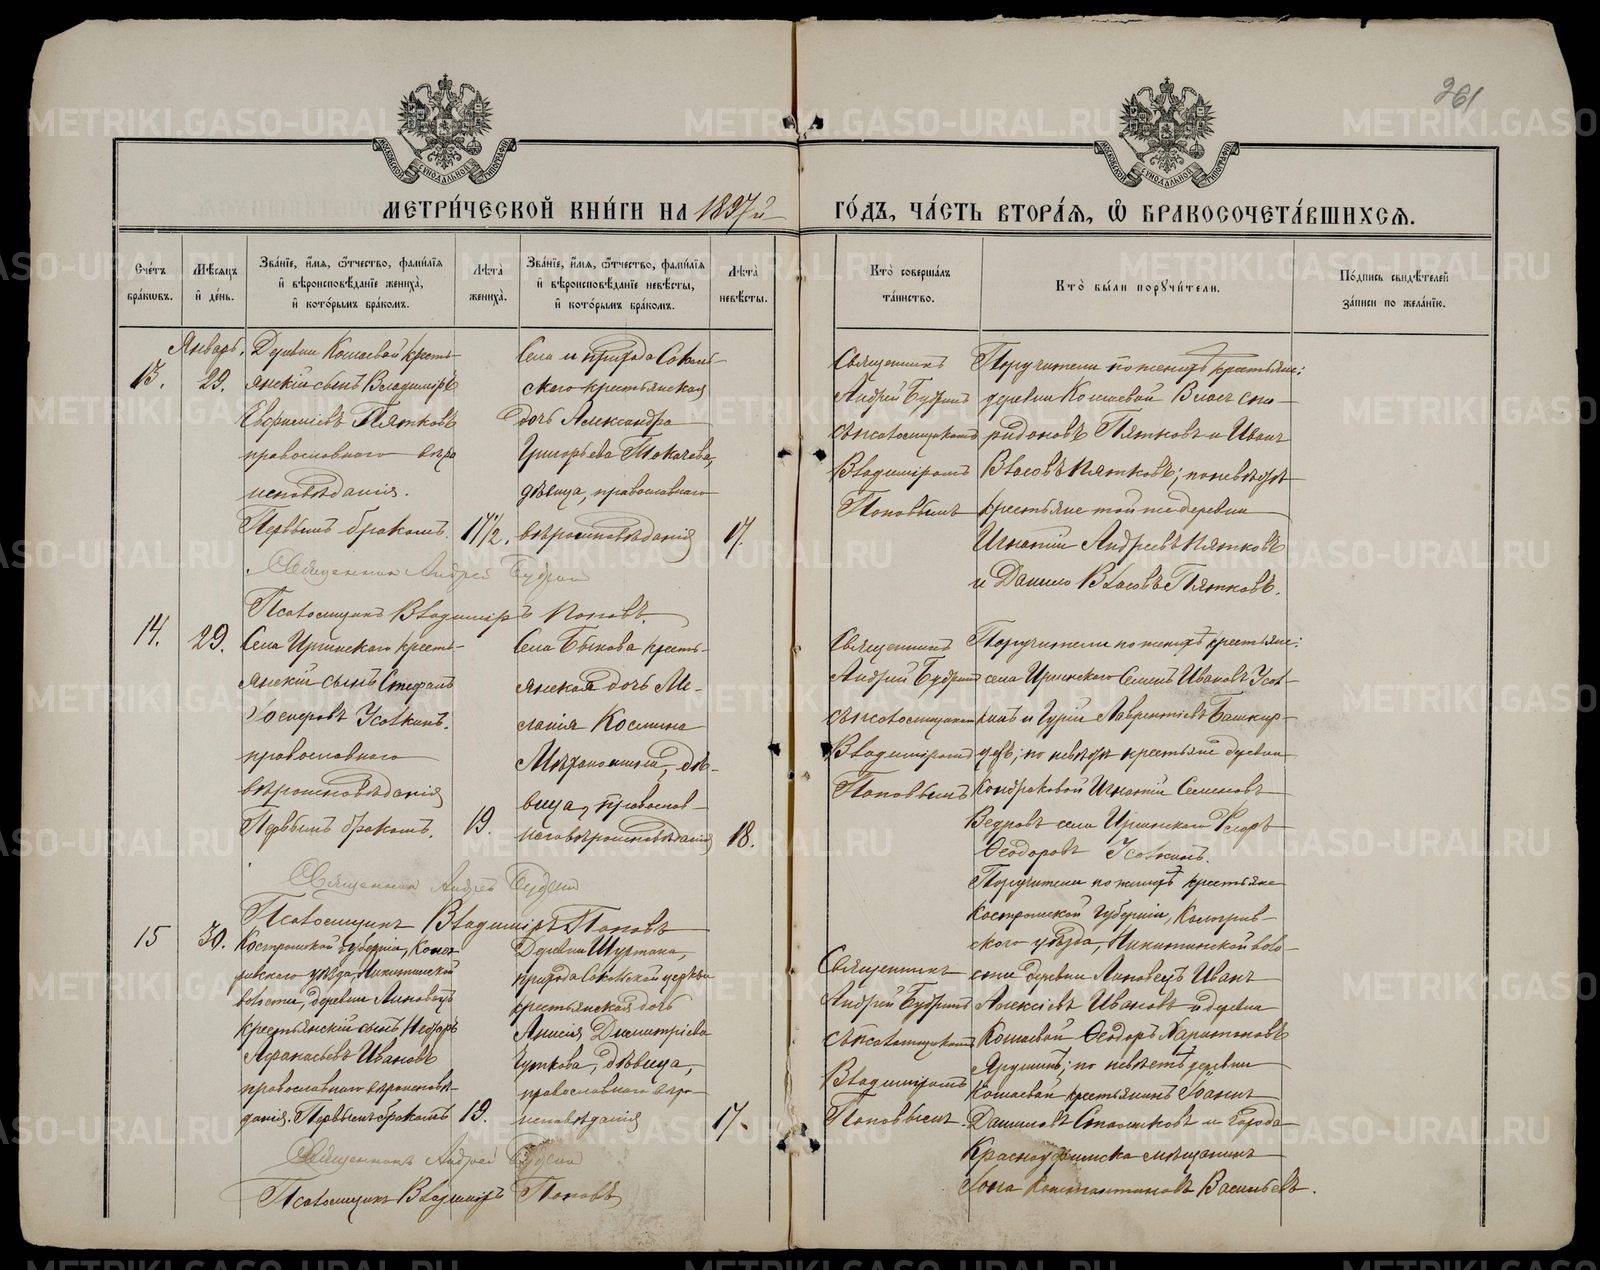 261
МЕТРИ́ЧЕСКОЙ КНИ́ГИ НА 1897й
ГО́ДЪ, ЧА́СТЬ ВТОРА́Я, Ѡ БРАКОСОЧЕТА́ВШИХСЯ.
Сче́тъ бра́ковъ.
Мѣ́сяцъ и де́нь.
Зва́нїе, и́мя, ѻ́тчество, фами́лїя и вѣроисповѣ́данїе жениха̀, и кото́рымъ бра́комъ.
Лѣ́та жениха̀.
Зва́нїе, и́мя, ѻ́тчество, фами́лїя и вѣроисповѣ́данїе невѣ́сты, и кото́рымъ бра́комъ.
Лѣ́та невѣ́сты.
Кто̀ соверша́лъ та́инство.
Кто̀ бы́ли поручи́тели.
По́дпись свидѣ́телей за́писи по жела́нїю.
Январь.
13.
29.
Деревни Кошаевой кресть-
янскій сынъ Владиміръ
Евфиміевъ Пятковъ
православнаго вѣро
исповѣданія.
Первымъ бракомъ.
17½.
Села и прихода Соколь-
скаго крестьянская
дочь Александра
Григорьева Токачева,
дѣвица, православнаго
вѣроисповѣданія
17.
Священникъ
Андрей Будринъ
съ псаломщикомъ
Владиміромъ
Поповымъ
Поручители по женихѣ крестьяне:
деревни Кошаевой Власъ Спи-
ридоновъ Пятковъ и Иванъ
Власовъ Пятковъ; по невѣстѣ
крестьяне той же деревни
Игнатій Андреевъ Пятковъ
и Данило Власовъ Пятковъ.
Священникъ Андрей Будрин
Псаломщикъ Владиміръ Поповъ.
14.
29.
Села Иргинскаго кресть-
янскій сынъ Стефанъ
Усолкинъ.
православнаго
вѣроисповѣданія
Первымъ бракомъ.
19.
Села Быкова кресть-
янская дочь Ме-
ланія Космина
дѣ-
вица, православ-
наго вѣроисповѣданія
18.
Священникъ
Андрей Будринъ
съ псаломщикомъ
Владиміромъ
Поповымъ
Поручители по женихѣ крестьяне:
села Иргинскаго Семенъ Ивановъ Усол-
кинъ и Гурій Лаврентіевъ Башкир-
цевъ; по невѣстѣ крестьяне деревни
Кондраковой Игнатій Семеновъ
Ведровъ села Иргинскаго Ѳедоръ
Ѳеодоровъ Усолкинъ.
Священник Андрей Будрин
Псаломщикъ Владиміръ Поповъ
15
30.
Костромской губерніи, Колог-
ривскаго уѣзда, Никитинской
волости, деревни Линовецъ
крестьянскій сынъ Ѳедоръ
Афанасьевъ Ивановъ
православнаго вѣроисповѣ-
данія. Первымъ бракомъ
19.
Деревни Шуртана,
прихода Сокольской церкви
крестьянская дочь
Анисія Димитріева
Чуткова, дѣвица,
православнаго вѣро-
исповѣданія
17.
Священникъ
Андрей Будринъ
съ псаломщикомъ
Владиміромъ
Поповымъ.
Поручители по женихѣ крестьяне
Костромской губерніи, Кологрив-
скаго уѣзда, Никитинской воло-
сти деревни Линовецъ Иванъ
Алексѣевъ Ивановъ и деревни
Кошаевой Ѳеодоръ Харитоновъ
по невѣстѣ деревни
Кошаевой крестьянинъ Іоаннъ
Даниловъ и города
Красноуфимска мѣщанинъ
Іона Константиновъ Васильевъ.
Священникъ Андрей Будрин
Псаломщикъ Владиміръ Поповъ
METRIKI.GASO-URAL.RU